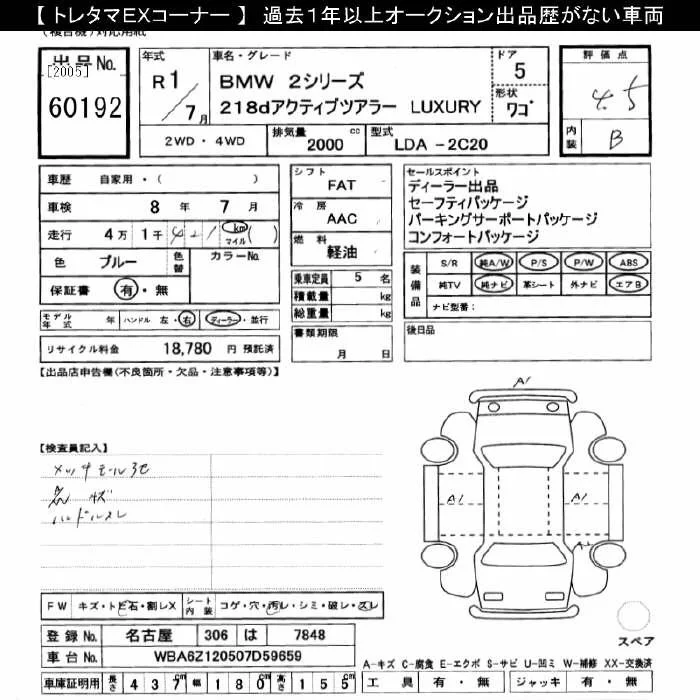 【 トレタマEXコーナー 】 過去1年以上オークション出品歴がない車両
(複合機)対応用紙
出品No.
[2005]
60192
年式
R 1 / 7 月
車名・グレード
BMW 2シリーズ
218dアクティブツアラー LUXURY
ドア
5
形状
ワゴ
評価点
4.5
内装
B
2WD・4WD
排気量
2000 cc
型式
LDA -2C20
車歴 自家用・( )
車検 8 年 7 月
走行 4 万 1 千 421 km マイル ( )
色 ブルー 色替 カラーNo.
保証書 有・無
モデル年式 年 ハンドル 左・右 ディーラー・並行
リサイクル料金 18,780 円 預託済
シフト
FAT
冷房
AAC
燃料
軽油
乗車定員 5 名
積載量 kg
総重量 kg
書類期限
月 日
セールスポイント
ディーラー出品
セーフティパッケージ
パーキングサポートパッケージ
コンフォートパッケージ
装備品
S/R 純A/W P/S P/W ABS
純TV 純ナビ 革シート 外ナビ エアB
ナビ型番:
後日品
【出品店申告欄(不良箇所・欠品・注意事項等)】
【検査員記入】
メッキモール
ハンドルスレ
A1
A1
A1
A1
FW キズ・トビ石・割レX
シート内装 コゲ・穴・汚レ・シミ・破レ・スレ
登録No. 名古屋 306 は 7848
車台No. WBA6Z120507D59659
車庫証明用 長さ 437 幅 180 高さ 155
スペア
A-キズ C-腐食 E-エクボ S-サビ U-凹ミ W-補修 XX-交換済
工具 有・無 ジャッキ 有・無